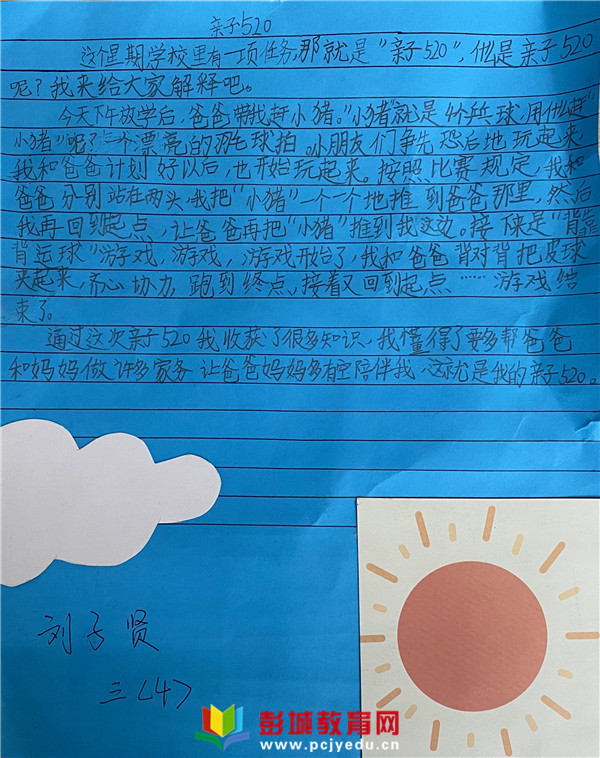 亲子520
这个星期学校里有一项任务,那就是"亲子520",什么是亲子520
呢?我来给大家解释吧。
今天下午放学后,爸爸带我赶小猪。"小猪"就是乒乓球,用什么赶"
小猪"呢?一个漂亮的羽毛球拍。小朋友们争先恐后地玩起来,
我和爸爸计划好以后,也开始玩起来。按照比赛规定,我和
爸爸分别站在两头,我把"小猪"一个一个地推到爸爸那里,然后
我再回到起点,让爸爸再把"小猪"推到我这边。接下来是"背靠
背运球"游戏,游戏,游戏开始了,我和爸爸背对背把皮球
夹起来,齐心协力,跑到终点,接着又回到起点……游戏结
束了。
通过这次亲子520我收获了很多知识,我懂得了要多帮爸爸
和妈妈做许多家务 让爸爸妈妈多有空陪伴我,这就是我的亲子520。
刘子贤
三〈4〉
彭城教育网
www.pcjyedu.cn